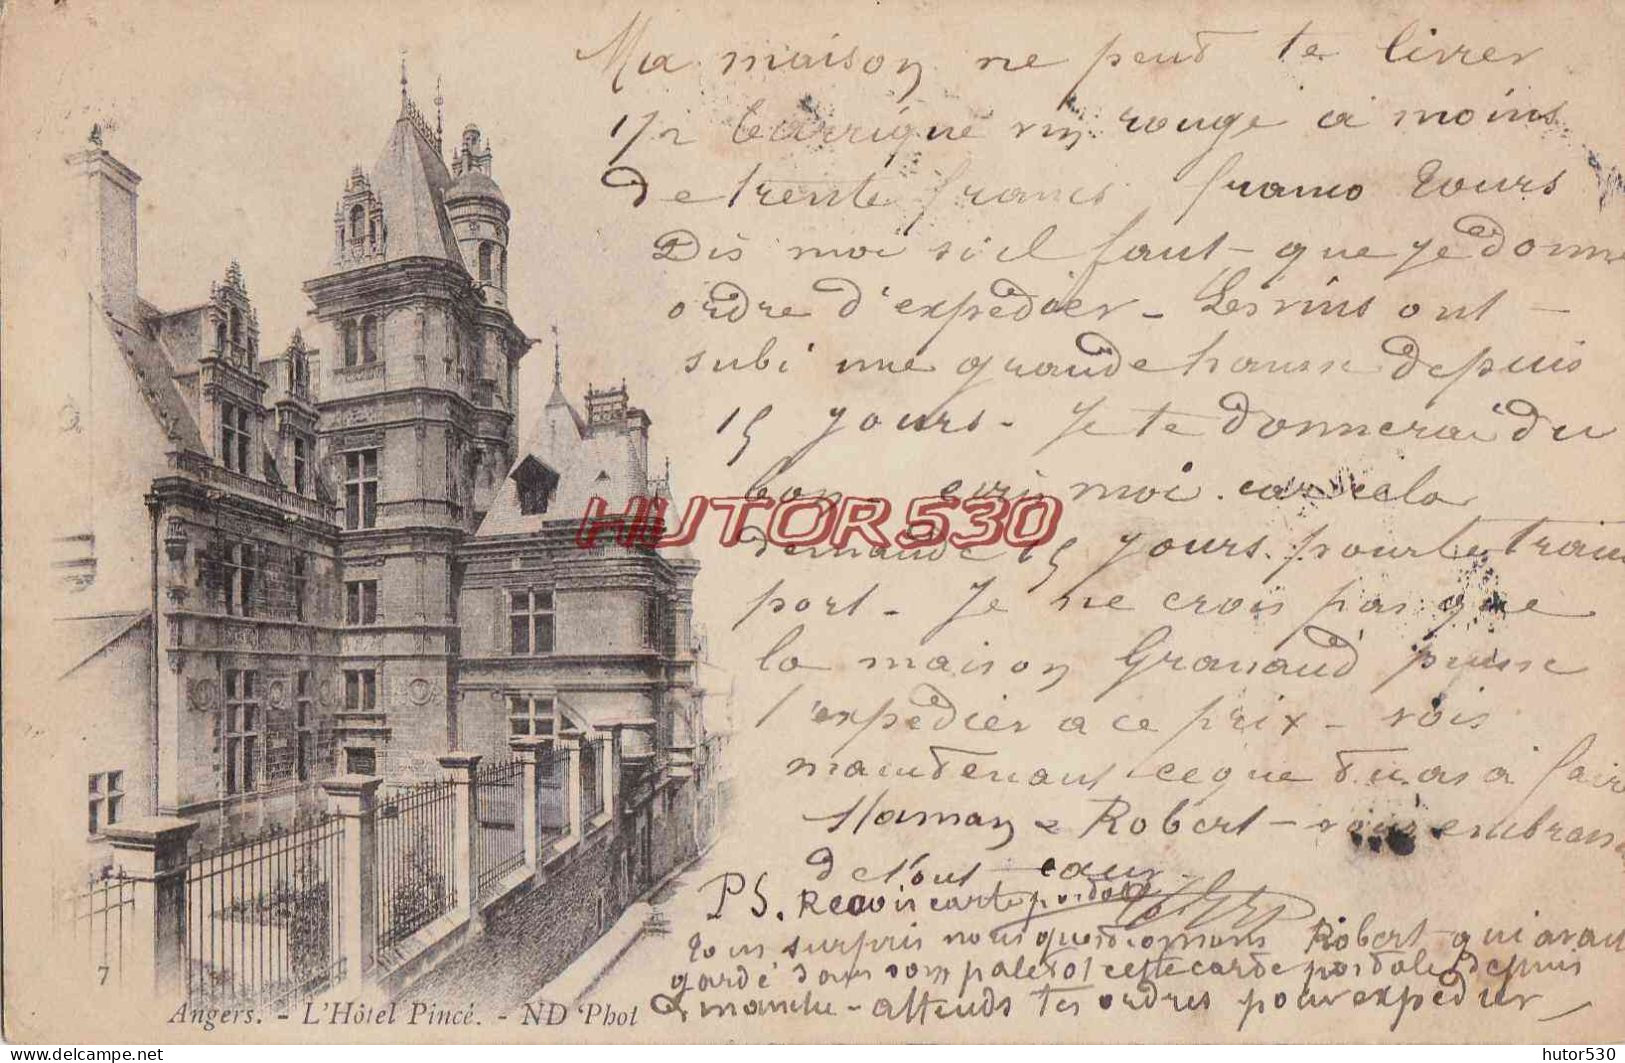 Ma maison ne peut te livrer
1/2 barrique vin rouge à moins
de trente francs franco Tours
Dis moi si il faut - que je donne
ordre d'expédier - Les vins ont -
subi une grande hausse depuis
15 jours - Je te donnerai du
bon écris moi car cela
demande 15 jours pour le trans
port - Je ne crois pas que
la maison Granaud puisse
l'expédier a ce prix - vois
maintenant ce que tu as à faire
Maman & Robert - vous embrassent
de tout cœur -
PS. Reçois carte postale
Tous surpris nous questionnons Robert qui avait
gardé dans son paletot cette carte postale depuis
Dimanche - attends tes ordres pour expédier
HUTOR530
7
Angers. - L'Hôtel Pincé. - ND Phot
delcampe.net
hutor530